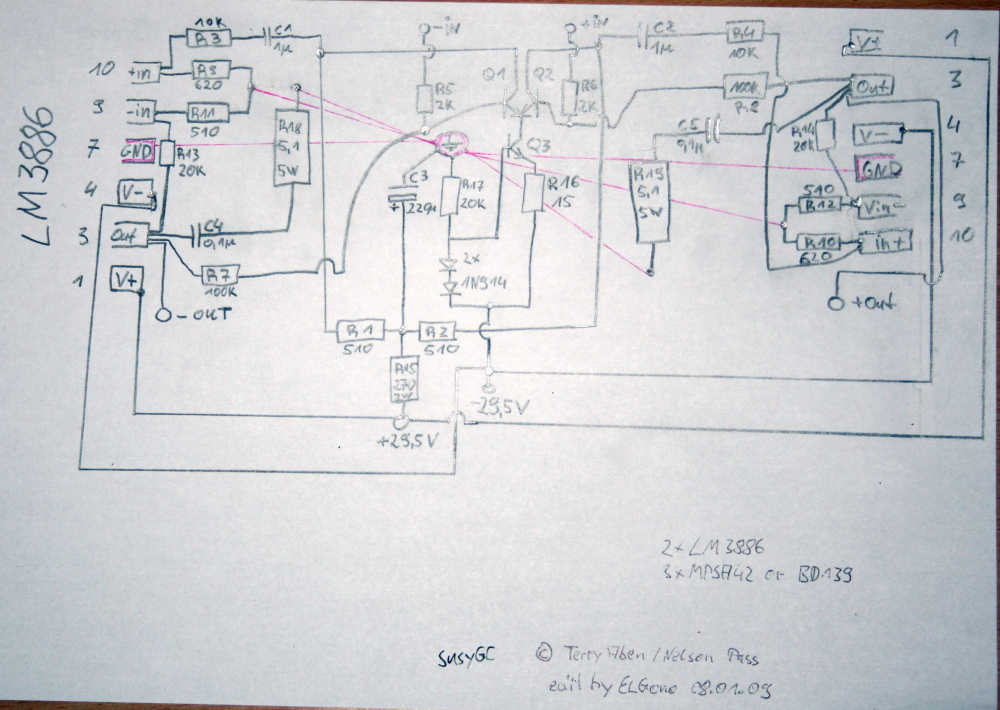 LM3886
10
9
7
4
3
1
+in
-in
GND
V-
Out
V+
10K
R3
C1
1µ
R9
620
R11
510
R13
20K
R18
5,1
5W
C4
0,1µ
R7
100K
-OUT
-iN
R5
2K
Q1
Q2
Q3
+iN
R6
2K
C3
+ 220µ
R17
20K
R16
15
2x
1N914
R1
510
R2
510
R15
270
2W
+29,5V
-29,5V
C2
1µ
R4
10K
100K
R8
C5
0,1µ
R14
20K
R19
5,1
5W
510
R12
R10
620
V+
Out
V-
GND
Vin-
in+
+Out
1
3
4
7
9
10
2x LM3886
3x MPSA42 or BD139
SUSYGC
© Terry / Nelson Pass
by ELGono 08.01.09